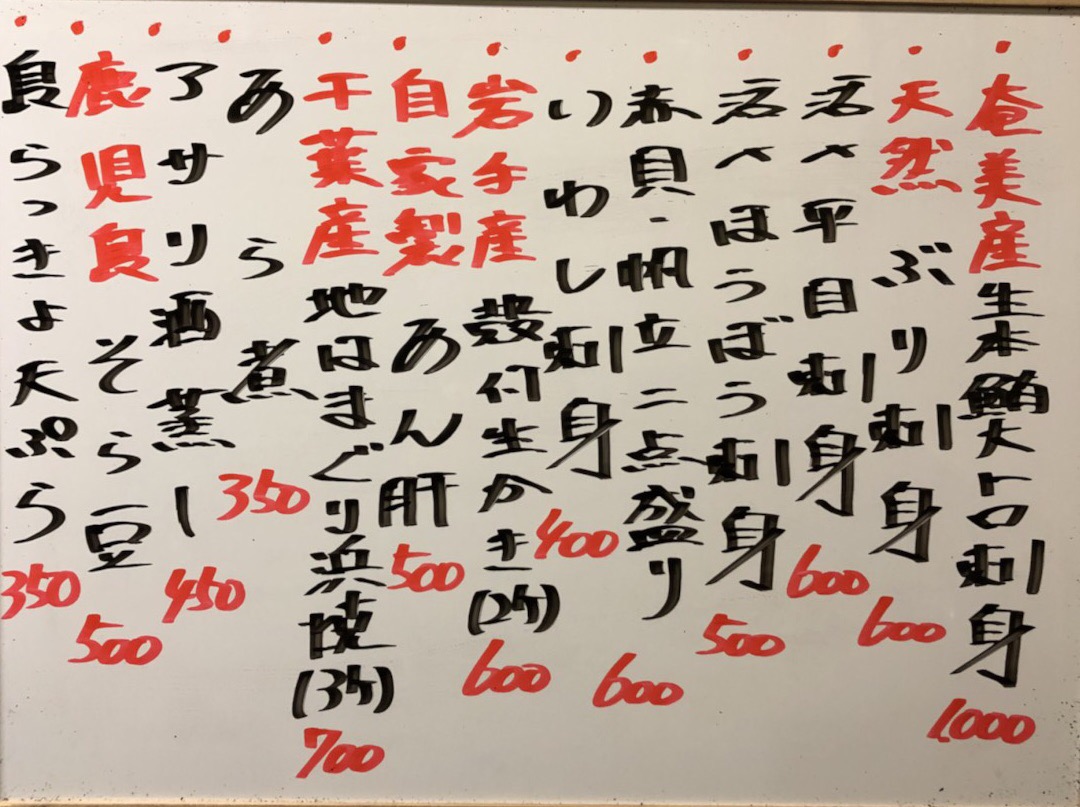 奄美産生本鮪大トロ刺身 1.000
天然ぶり刺身 600
活〆平目刺身 600
活〆ほうぼう刺身 500
赤貝・帆立二点盛り 600
いわし刺身 400
岩手産殻付生かき(2ケ) 600
自家製あん肝 500
千葉産地はまぐり浜焼(3ケ) 700
あら煮 350
アサリ酒蒸し 450
鹿児島そら豆 500
島らっきょ天ぷら 350